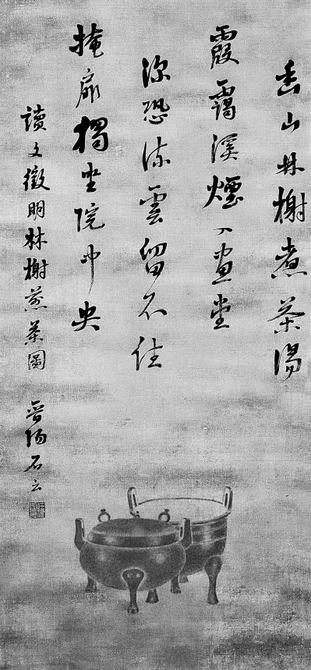 山林榭煮茶湯
霞靄溪煙入畫堂
深恐流雲留不住
掩扉獨坐院中央
讀文徵明林榭煎茶圖 晉陽石云